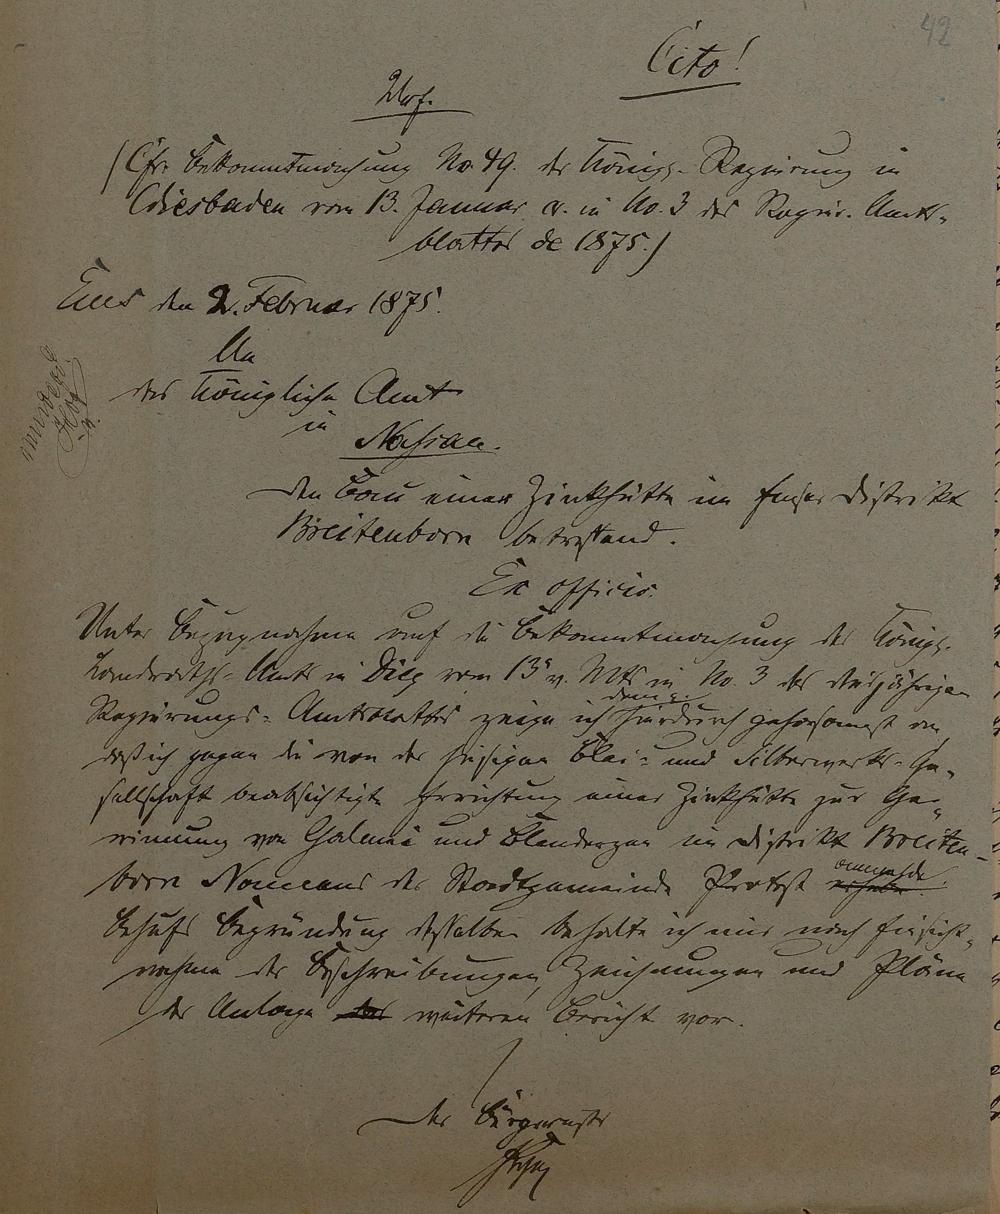 42
Cito!
Urs.
(Cfr. Bekanntmachung No. 49. der Königs. Regierung in
Wiesbaden vom 13. Januar cr. in No. 3 des Regier. Amts-
blattes de 1875.)
Ems den 2. Februar 1875.
An
das Königliche Amt
in
Nassau.
Den Bau einer Zinkhütte im Emser Distrikt
Breitenborn betreffend.
Ex officio.
Unter Bezugnahme auf die Bekanntmachung des Königs.
Landraths-Amts in Diez vom 13 v. Mts in No. 3 des diesjährigen
Regierungs-Amtsblattes zeige ich hierdurch gehorsamst an,
daß ich gegen die von der hiesigen Blei- und Silberwerks-Ge-
sellschaft beabsichtigte Errichtung einer Zinkhütte zur Ge-
winnung von Galmei und Blenderzen im Distrikt Breiten-
born Namens der Stadtgemeinde Protest anmelde. erhebe.
Behufs Begründung desselben behalte ich mir nach Einsicht-
nahme der Beschreibungen, Zeichnungen und Pläne
der Anlage weiteren Bericht vor.
Der Bürgermstr